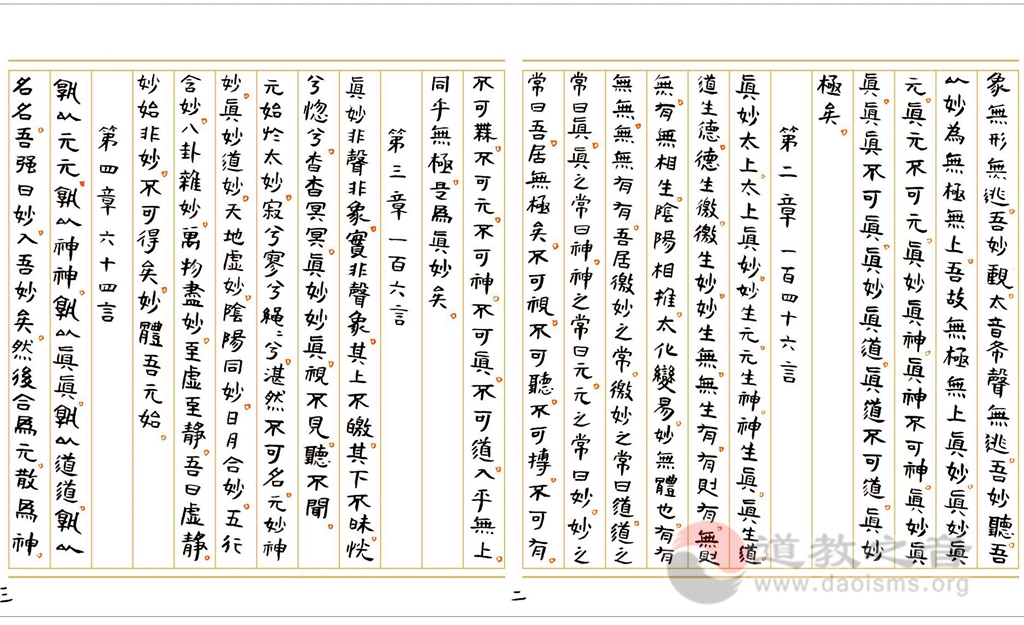 象無形無逃。吾妙觀。太音希聲無逃。吾妙聽。吾
以妙為無極無上。吾故無極無上眞妙。眞妙眞
元。眞元不可元。眞妙眞神。眞神不可神。眞妙眞
眞。眞眞不可眞。眞妙眞道。眞道不可道。眞妙
極矣。
第二章 一百四十六言
眞妙太上。太上眞妙。妙生元。元生神。神生眞。眞生道。
道生德。德生徼。徼生妙。妙生無。無生有。有則有。無則
無。有無相生。陰陽相推。太化變易。妙無體也。有有
無無。無無有有。吾居徼妙之常。徼妙之常曰道。道之
常曰眞。眞之常曰神。神之常曰元。元之常曰妙。妙之
常曰吾。居無極矣。不可視。不可聽。不可摶。不可有。
二
不可無。不可元。不可神。不可眞。不可道。入乎無上。
同乎無極。是爲眞妙矣。
第三章 一百六言
眞妙非聲非象。實非聲象。其上不皦。其下不昧。恍
兮惚兮。杳杳冥冥。眞妙妙眞。視不見。聽不聞。
元始於太妙。寂兮寥兮。繩〻兮。湛然不可名。元妙神
妙。眞妙道妙。天地虛妙。陰陽同妙。日月合妙。五行
含妙。八卦雜妙。萬物盡妙。至虛至靜。吾曰虛靜。
妙始非妙。不可得矣。妙體吾元始。
第四章 六十四言
孰以元元。孰以神神。孰以眞眞。孰以道道。孰以
名名。吾强曰妙。入吾妙矣。然後合爲元。散爲神。
三
道教之音
www.daoisms.org